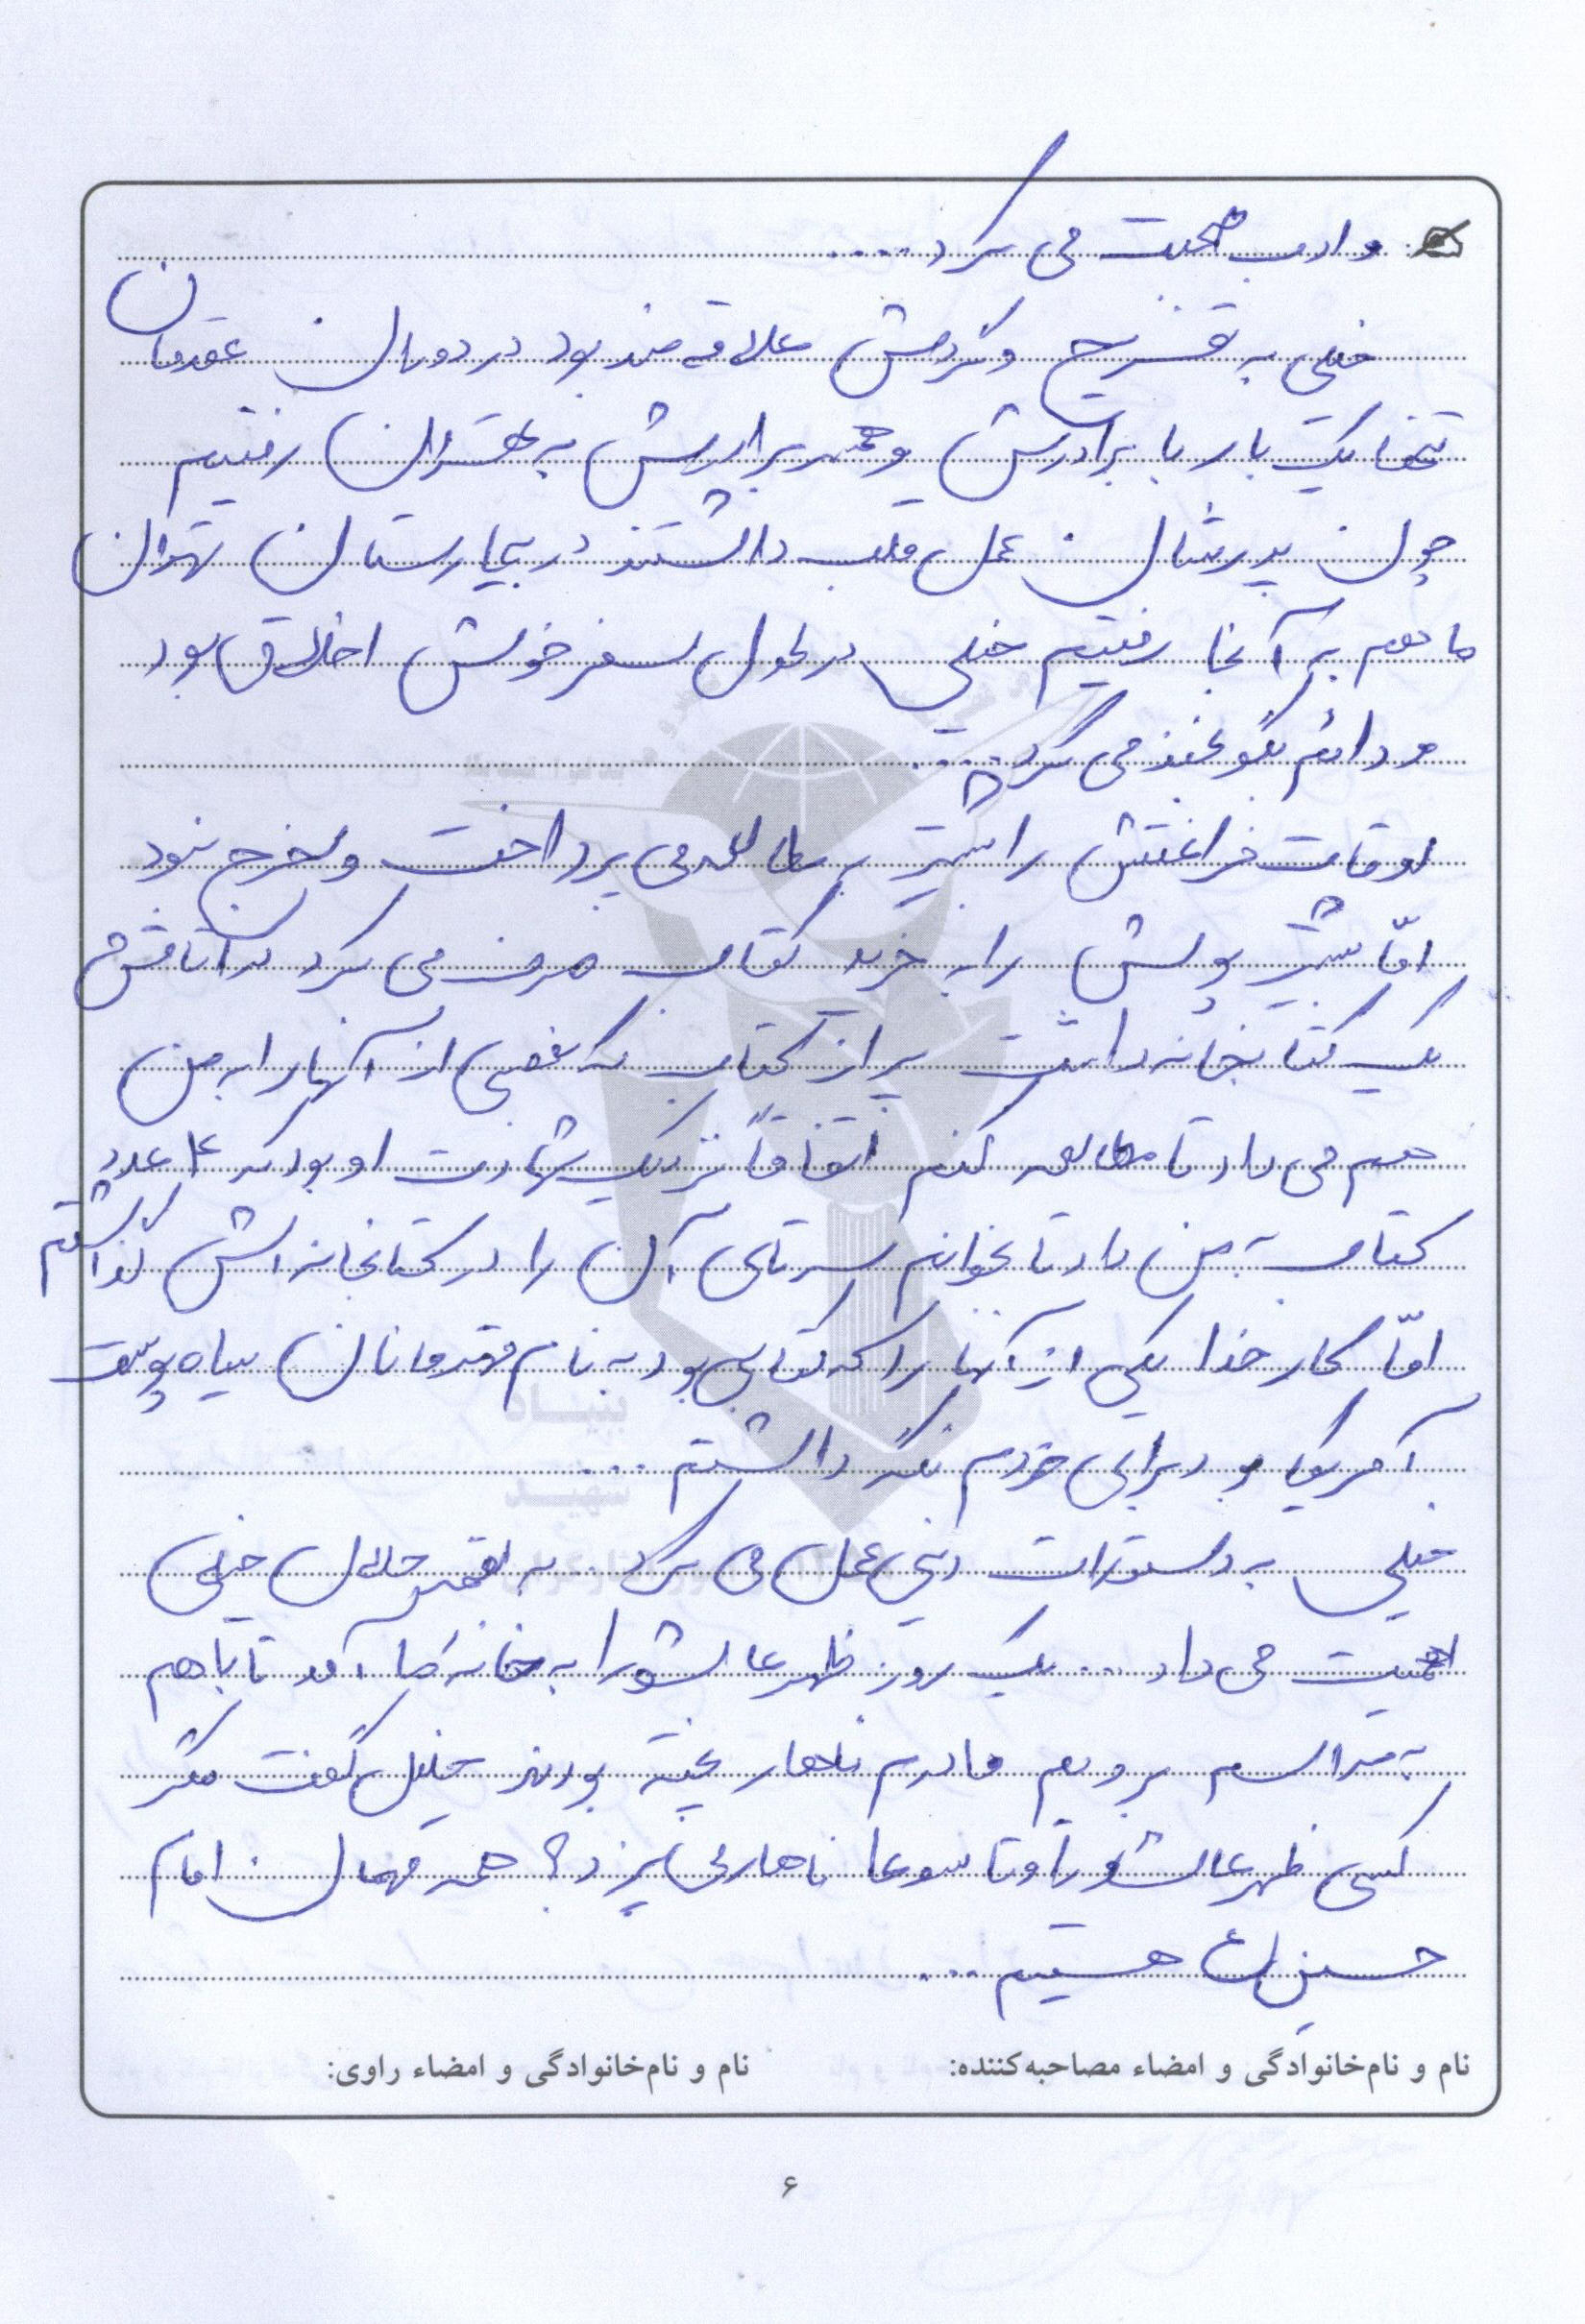 و ادب صحبت می کرد ....
خیلی به تفریح و گردش علاقه مند بود در دوران عقدمان
تنها یک بار با برادرش و همسر برادرش به تهران رفتیم
چون پدرشان عمل قلب داشتند در بیمارستان تهران
ما هم به آنجا رفتیم خیلی در طول سفر خوش اخلاق بود
و دائم بگو بخند می کرد ....
اوقات فراغتش را بیشتر به مطالعه می پرداخت ولخرج نبود
امّا بیشتر پولش را به خرید کتاب صرف می کرد در اتاقش
یک کتابخانه داشت پر از کتاب که بعضی از آنها را به من
هم می داد تا مطالعه کنم اتفاقاً نزدیک شهادت او بود که ۴ عدد
کتاب به من داد تا بخوانم سه تای آن را در کتابخانه اش گذاشتم
امّا کار خدا یکی از آنها را که کتابی بود به نام قهرمانان سیاه پوست
آمریکا بود برای خودم نگه داشتم ...
خیلی به دستورات دینی عمل می کرد .. به لقمه حلال خیلی
اهمیت می داد ... یک روز ظهر عاشورا به خانه ما آمد تا با هم
به مراسم برویم مادرم ناهار پخته بودند خلیل گفت مگر
کسی ظهر عاشورا و تاسوعا ناهار می پزد؟ همه مهمان امام
حسین (ع) هستیم ...
نام و نام‌خانوادگی و امضاء مصاحبه‌کننده: نام و نام‌خانوادگی و امضاء راوی:
۶
بنیاد
شهید